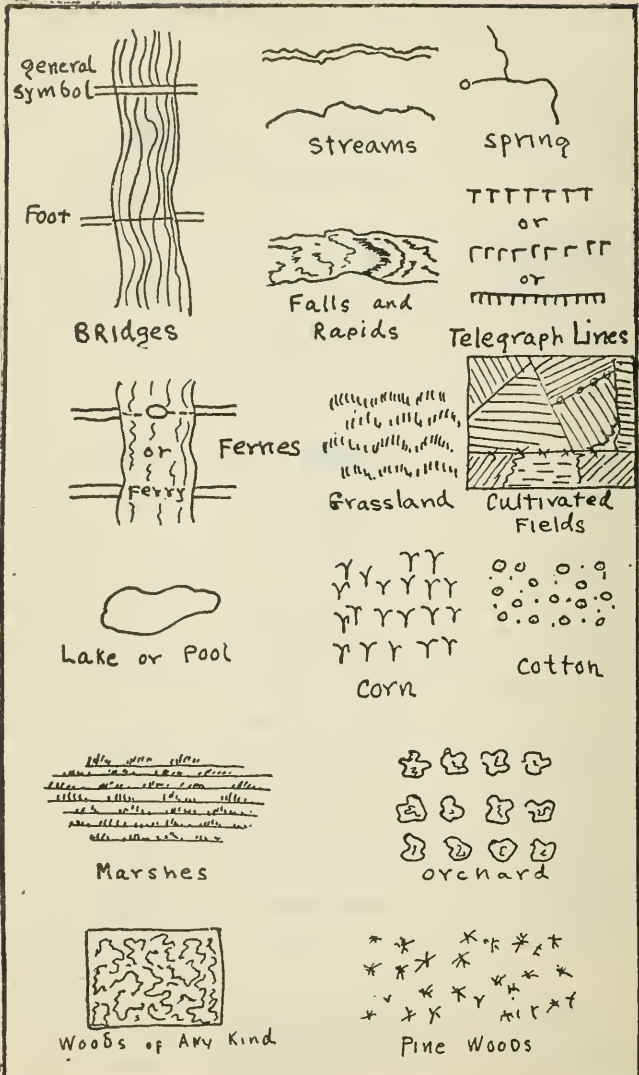 general
symbol
Foot
BRIdges
Streams
Spring
or
or
Falls and
Rapids
Telegraph Lines
or
Ferry
Ferries
Grassland
Cultivated
Fields
Lake or Pool
Corn
Cotton
Marshes
Orchard
Woods of Any Kind
Pine Woods